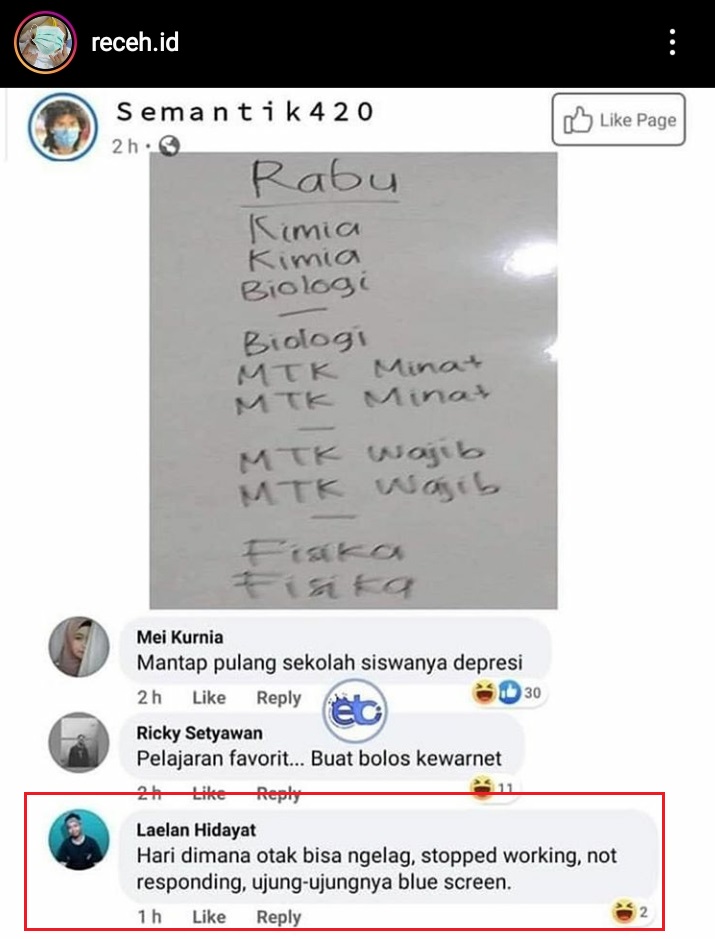 receh.id
Semantik420
Like Page
2 h
Rabu
Kimia
Kimia
Biologi
Biologi
MTK Minat
MTK Minat
MTK Wajib
MTK Wajib
Fisika
Fisika
Mei Kurnia
Mantap pulang sekolah siswanya depresi
2 h Like Reply 30
etc
Ricky Setyawan
Pelajaran favorit... Buat bolos kewarnet
2 h Like Reply 11
Laelan Hidayat
Hari dimana otak bisa ngelag, stopped working, not
responding, ujung-ujungnya blue screen.
1 h Like Reply 2